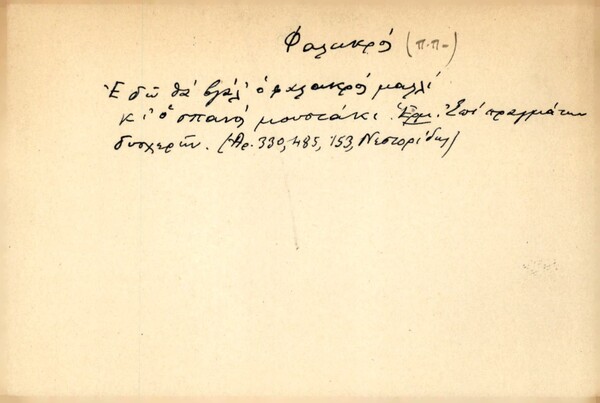 Φαλακρός (π.π.)
Ἐδῶ θά βγάλ' ὁ φαλακρός μαλλί
κι' ὁ σπανός μουστάκι. Ἑρμ. Ἐπί πραγμάτων
δυσχερῶν. (Ἀρ. 330, 485, 153, Νεστορίδης)